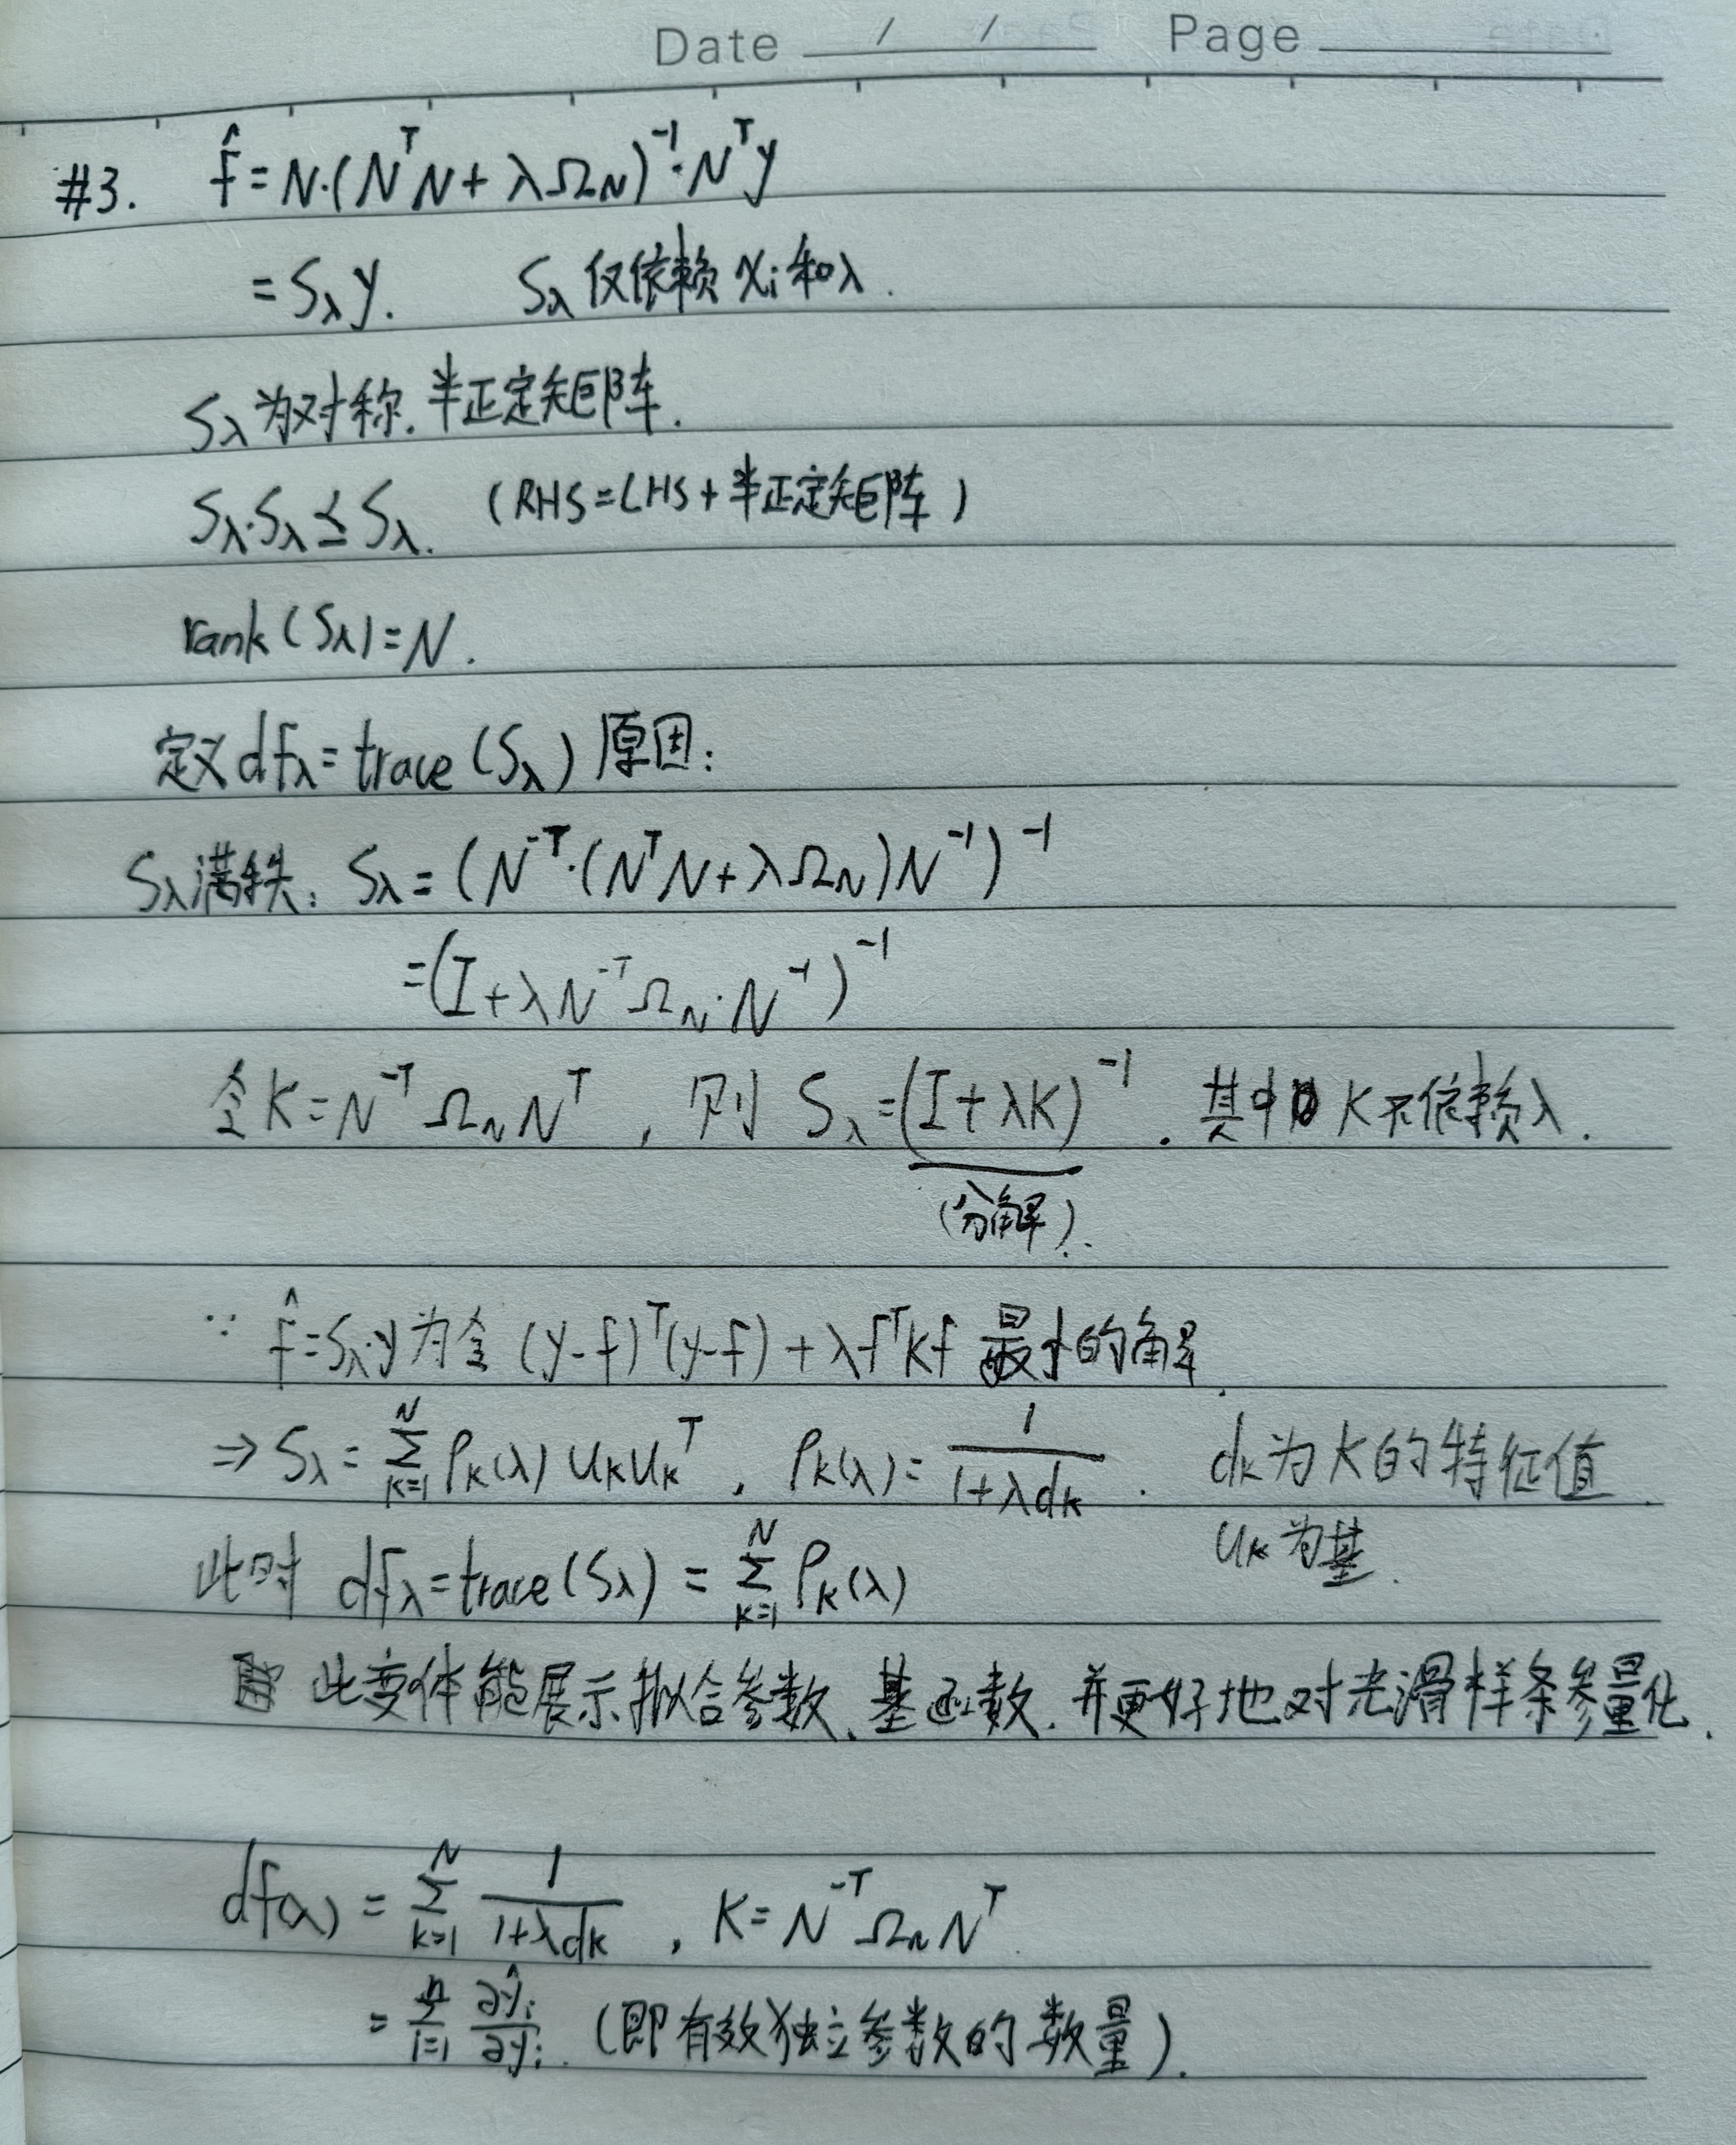 Date / / Page
#3. f̂ = N·(NᵀN + λΩ_N)⁻¹·Nᵀy
= S_λ y. S_λ 仅依赖 x_i 和 λ.
S_λ 为对称. 半正定矩阵.
S_λ·S_λ ≼ S_λ. (RHS = LHS + 半正定矩阵)
rank(S_λ) = N.
定义 df_λ = trace(S_λ) 原因:
S_λ 满秩: S_λ = (N⁻ᵀ·(NᵀN + λΩ_N)N⁻¹)⁻¹
= (I + λN⁻ᵀΩ_N·N⁻¹)⁻¹
令 K = N⁻ᵀ Ω_N Nᵀ, 则 S_λ = (I + λK)⁻¹. 其中 K 不依赖 λ.
(分解).
∵ f̂ = S_λ·y 为令 (y-f)ᵀ(y-f) + λfᵀKf 最小的解.
⇒ S_λ = Σ_{k=1}^{N} ρ_k(λ) u_k u_kᵀ, ρ_k(λ) = 1/(1+λd_k). d_k 为 K 的特征值.
u_k 为基.
此时 df_λ = trace(S_λ) = Σ_{k=1}^{N} ρ_k(λ)
此变体能展示拟合参数、基函数. 并更好地对光滑样条参量化.
df(λ) = Σ_{k=1}^{N} 1/(1+λd_k), K = N⁻ᵀ Ω_N Nᵀ.
= Σ_{i=1}^{n} ∂ŷ_i/∂y_i. (即有效独立参数的数量).